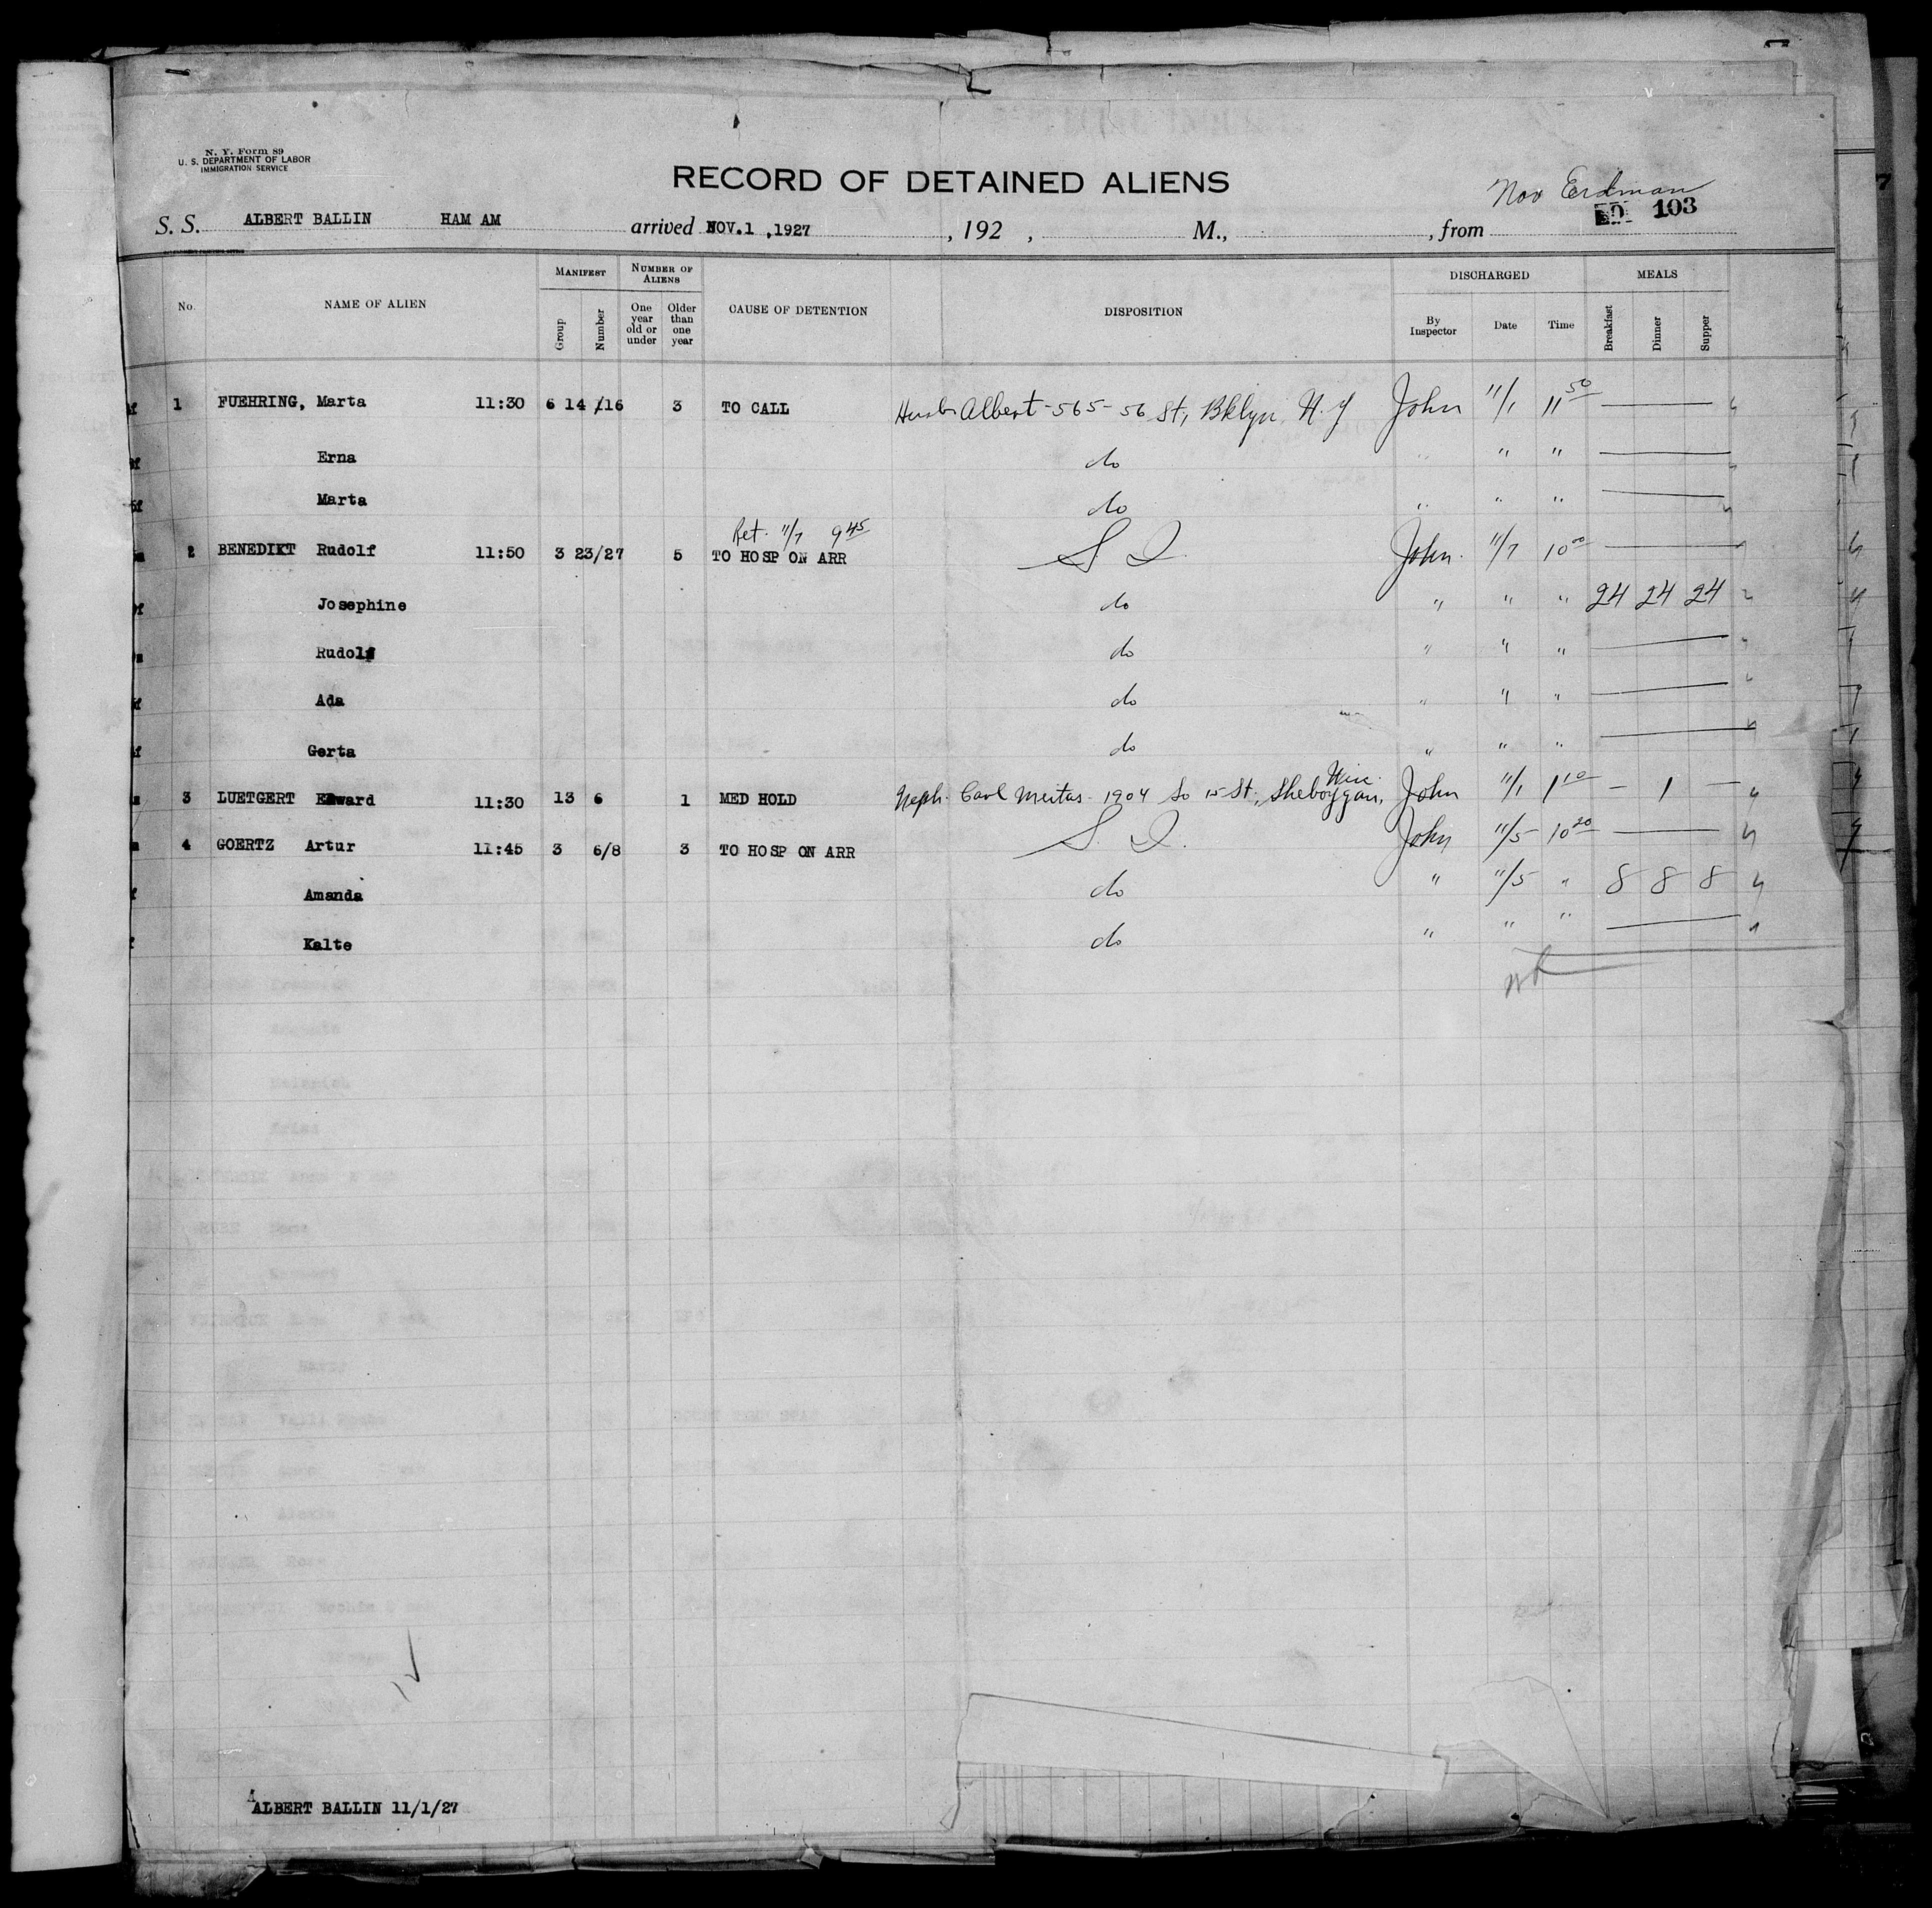 N. Y. Form 89
U. S. DEPARTMENT OF LABOR
IMMIGRATION SERVICE
RECORD OF DETAINED ALIENS
Nov Erdman
103
S. S. ALBERT BALLIN HAM AM arrived NOV.1 ,1927 , 192 , M., , from
No. NAME OF ALIEN MANIFEST Group Number NUMBER OF ALIENS One year old or under Older than one year CAUSE OF DETENTION DISPOSITION DISCHARGED By Inspector Date Time MEALS Breakfast Dinner Supper
1 FUEHRING, Marta 11:30 6 14 /16 3 TO CALL Husb Albert - 565 - 56 St, Bklyn, N. Y John 11/1 11 50
Erna do " " "
Marta do " " "
Ret. 11/7 9 45
2 BENEDIKT Rudolf 11:50 3 23/27 5 TO HOSP ON ARR S I John. 11/7 10 00
Josephine do " " " 24 24 24
Rudolf do " " "
Ada do " " "
Gerta do " " "
3 LUETGERT Edward 11:30 13 6 1 MED HOLD Neph. Carl 1904 So 15 St., Sheboygan, Wisc. John 11/1 1 10 — 1 —
4 GOERTZ Artur 11:45 3 6/8 3 TO HOSP ON ARR S. I. John 11/5 10 20
Amanda do " 11/5 " 8 8 8
Kalte do " " "
ALBERT BALLIN 11/1/27